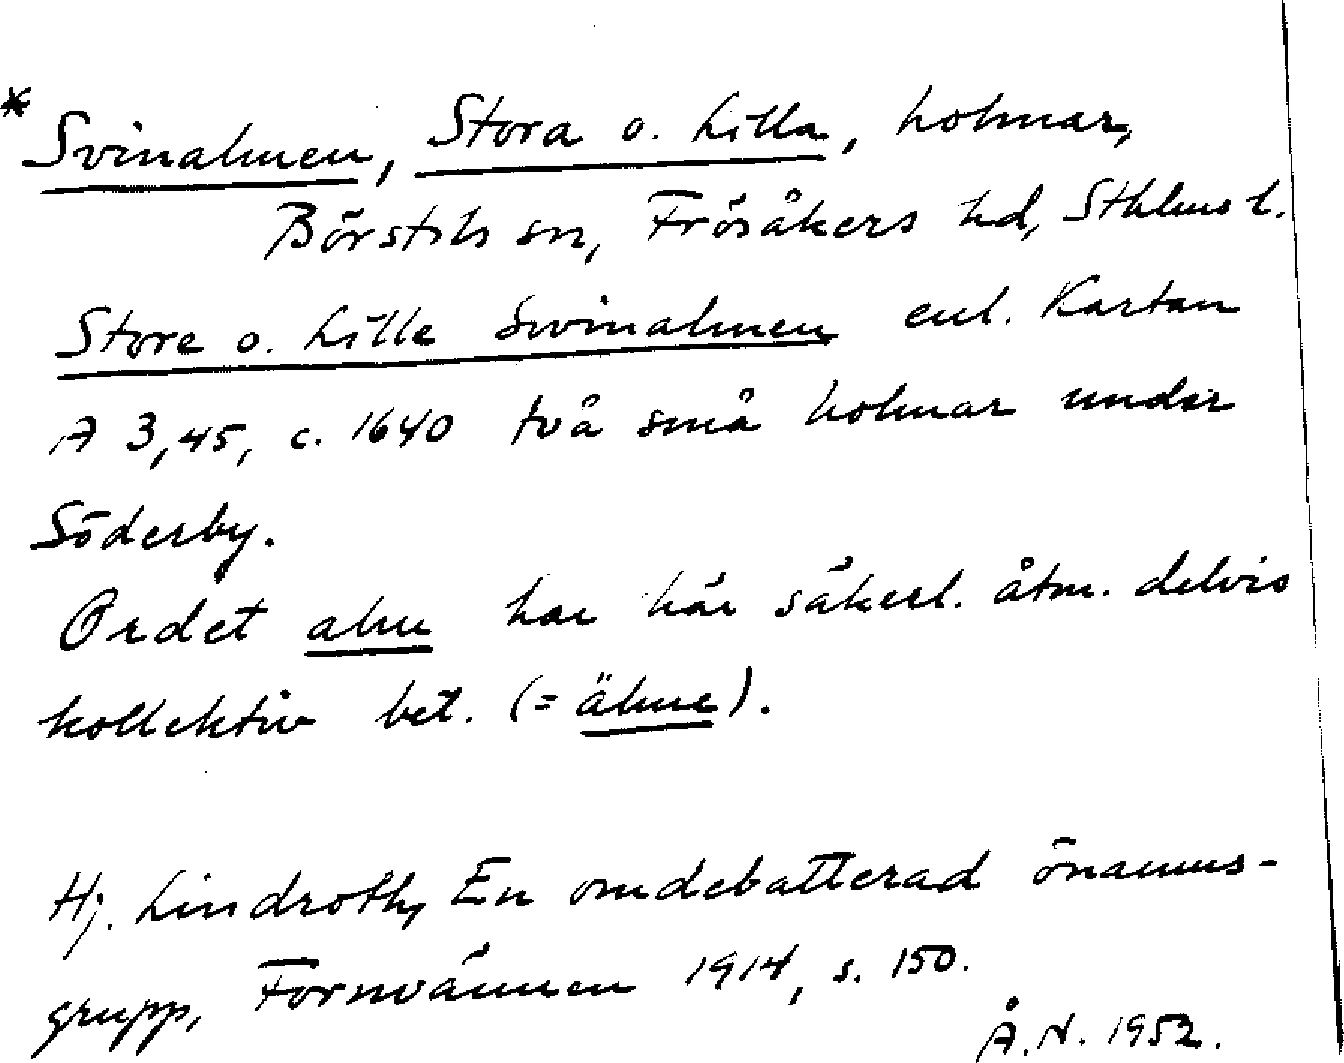 * Svinalmen, Stora o. Lilla, holmar,
Börstils sn, Frösåkers hd, Sthlms l.
Store o. Lille Swinalmen enl. Kartan
A 3,45, c. 1640 två små holmar under
Söderby.
Ordet alm har här säkerl. åtm. delvis
kollektiv bet. (= älme).
Hj. Lindroth, En omdebatterad önamns-
grupp, Fornvännen 1914, s. 150.
Å.N. 1952.